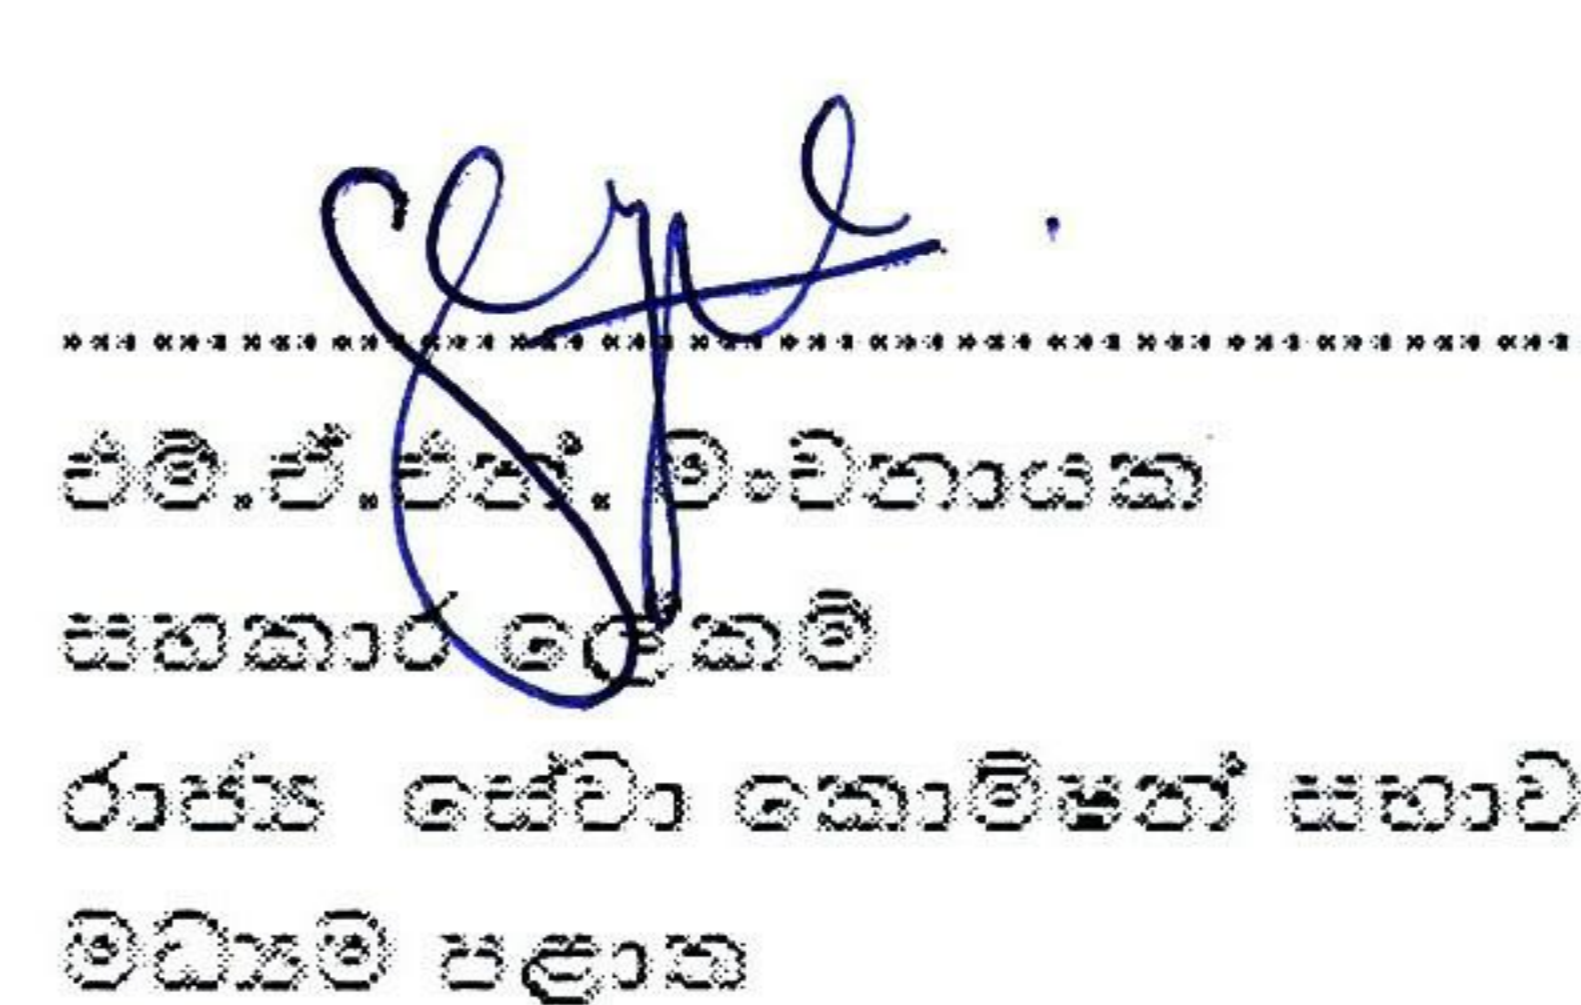 එම්.ඒ.එන්. මංචනායක
සහකාර ලේකම්
රාජ්‍ය සේවා කොමිෂන් සභාව
මධ්‍යම පළාත